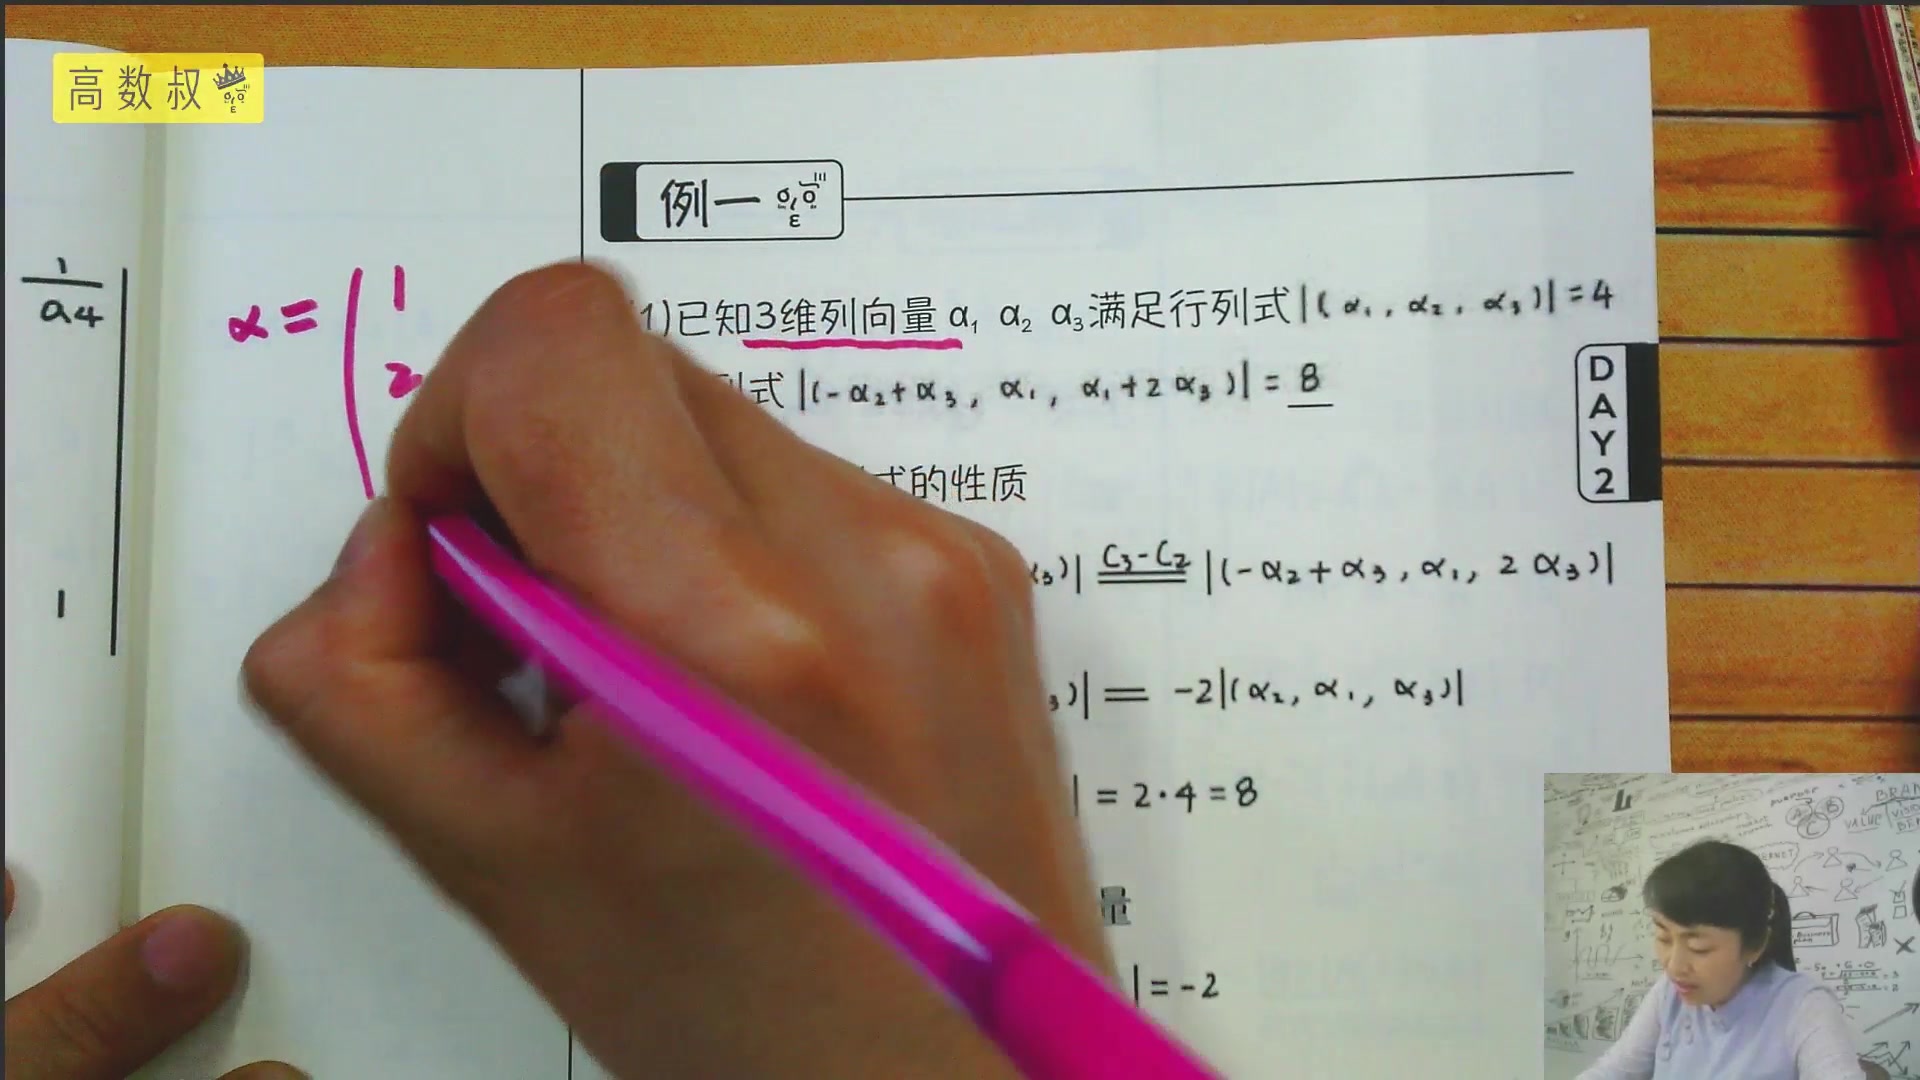 高数叔
例一
1
a4
1
α = ( 1
2
1)已知3维列向量 α₁ α₂ α₃满足行列式|(α₁, α₂, α₃)| = 4
列式 |(-α₂+α₃, α₁, α₁+2α₃)| = 8
式的性质
α₃)| C₃-C₂ |(-α₂+α₃, α₁, 2α₃)|
₃)| = -2|(α₂, α₁, α₃)|
| = 2·4 = 8
量
| = -2
DAY2